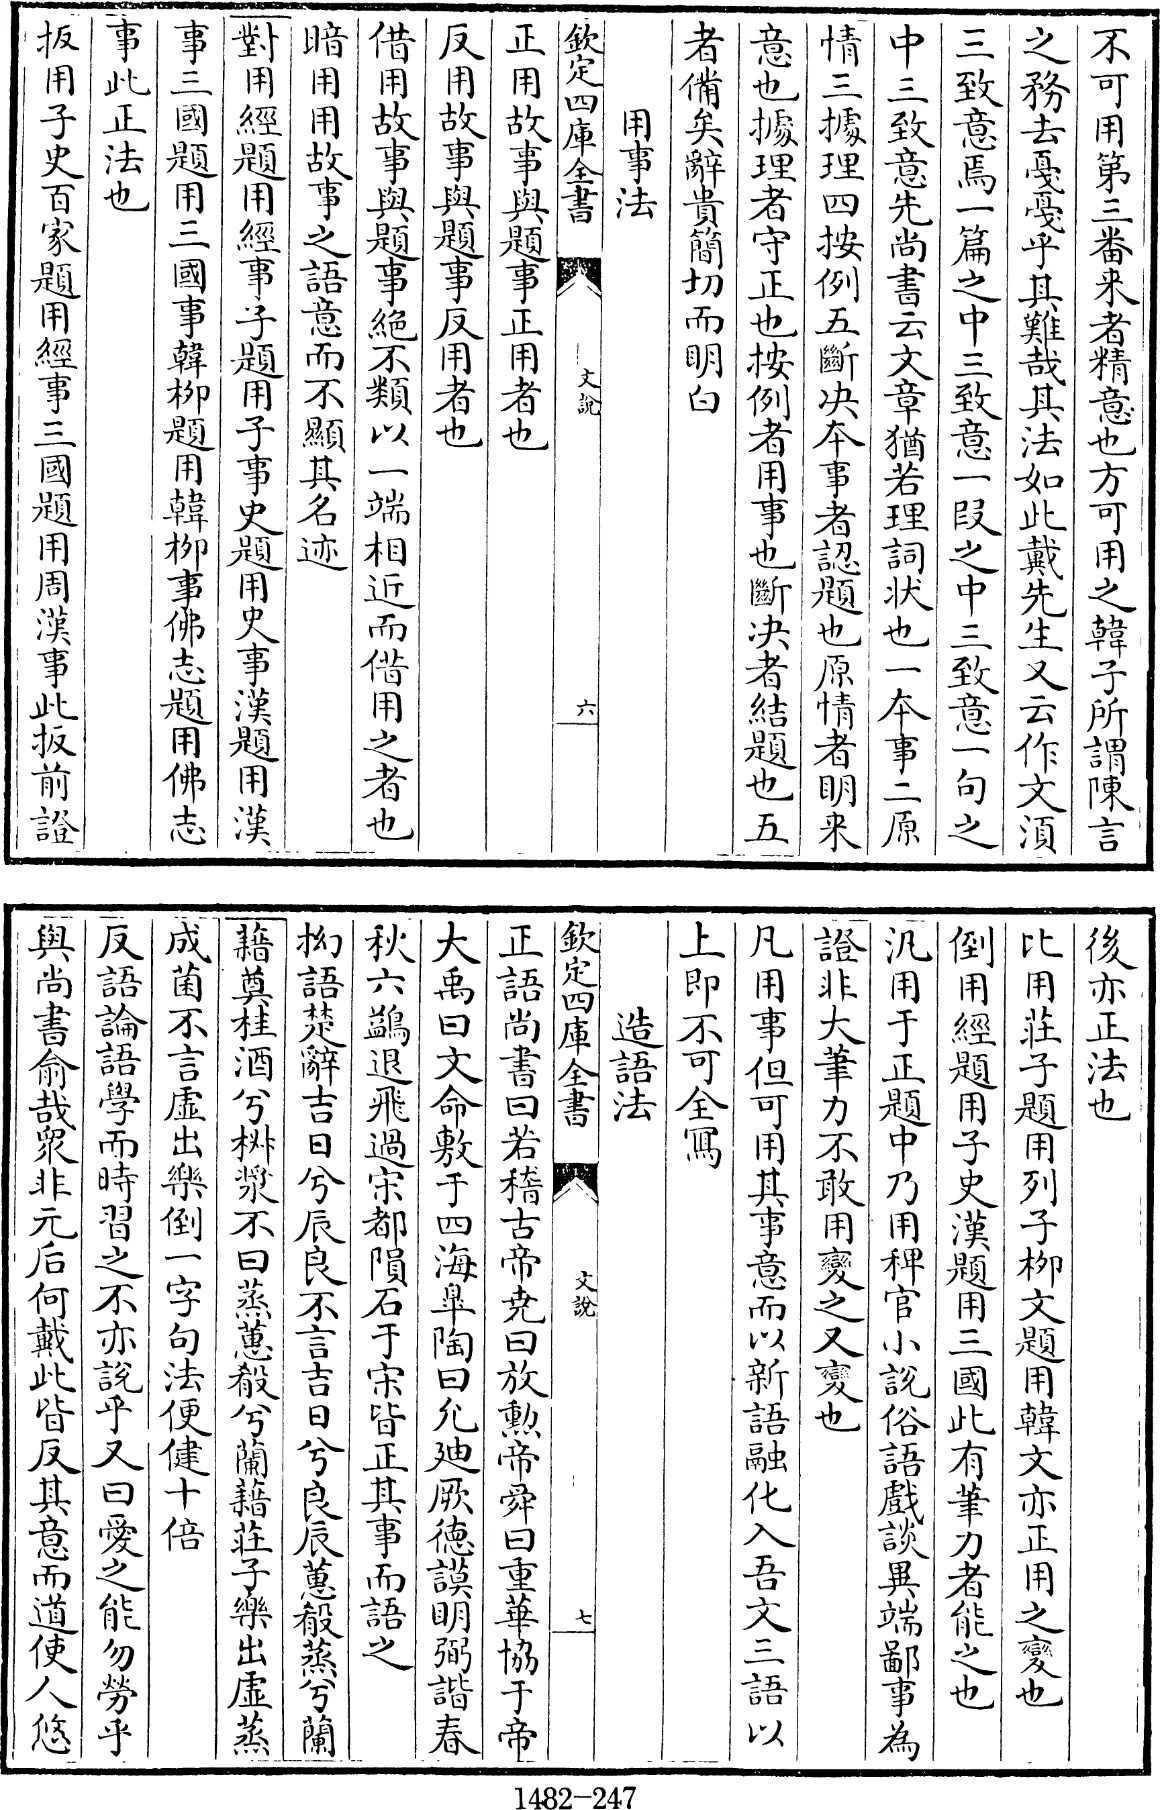 不可用第三番来者精意也方可用之韓子所謂陳言
之務去戞戞乎其難哉其法如此戴先生又云作文湏
三致意焉一篇之中三致意一段之中三致意一句之
中三致意先尚書云文章猶若理詞狀也一本事二原
情三據理四按例五斷决本事者認題也原情者明来
意也據理者守正也按例者用事也斷决者結題也五
者備矣辭貴簡切而明白
用事法
欽定四庫全書
文說
六
正用故事與題事正用者也
反用故事與題事反用者也
借用故事與題事絶不類以一端相近而借用之者也
暗用用故事之語意而不顯其名迹
對用經題用經事子題用子事史題用史事漢題用漢
事三國題用三國事韓栁題用韓栁事佛志題用佛志
事此正法也
扳用子史百家題用經事三國題用周漢事此扳前證
後亦正法也
比用莊子題用列子栁文題用韓文亦正用之變也
倒用經題用子史漢題用三國此有筆力者能之也
汎用于正題中乃用稗官小說俗語戲談異端鄙事為
證非大筆力不敢用變之又變也
凡用事但可用其事意而以新語融化入吾文三語以
上即不可全寫
造語法
欽定四庫全書
文說
七
正語尚書曰若稽古帝堯曰放勲帝舜曰重華恊于帝
大禹曰文命敷于四海臯陶曰允廸厥德謨明弼諧春
秋六鷁退飛過宋都隕石于宋皆正其事而語之
拗語楚辭吉日兮辰良不言吉日兮良辰蕙殽蒸兮蘭
藉奠桂酒兮椒漿不曰蒸蕙殽兮蘭藉莊子樂出虛蒸
成菌不言虛出樂倒一字句法便健十倍
反語論語學而時習之不亦說乎又曰愛之能勿勞乎
與尚書俞哉衆非元后何戴此皆反其意而道使人悠
1482-247